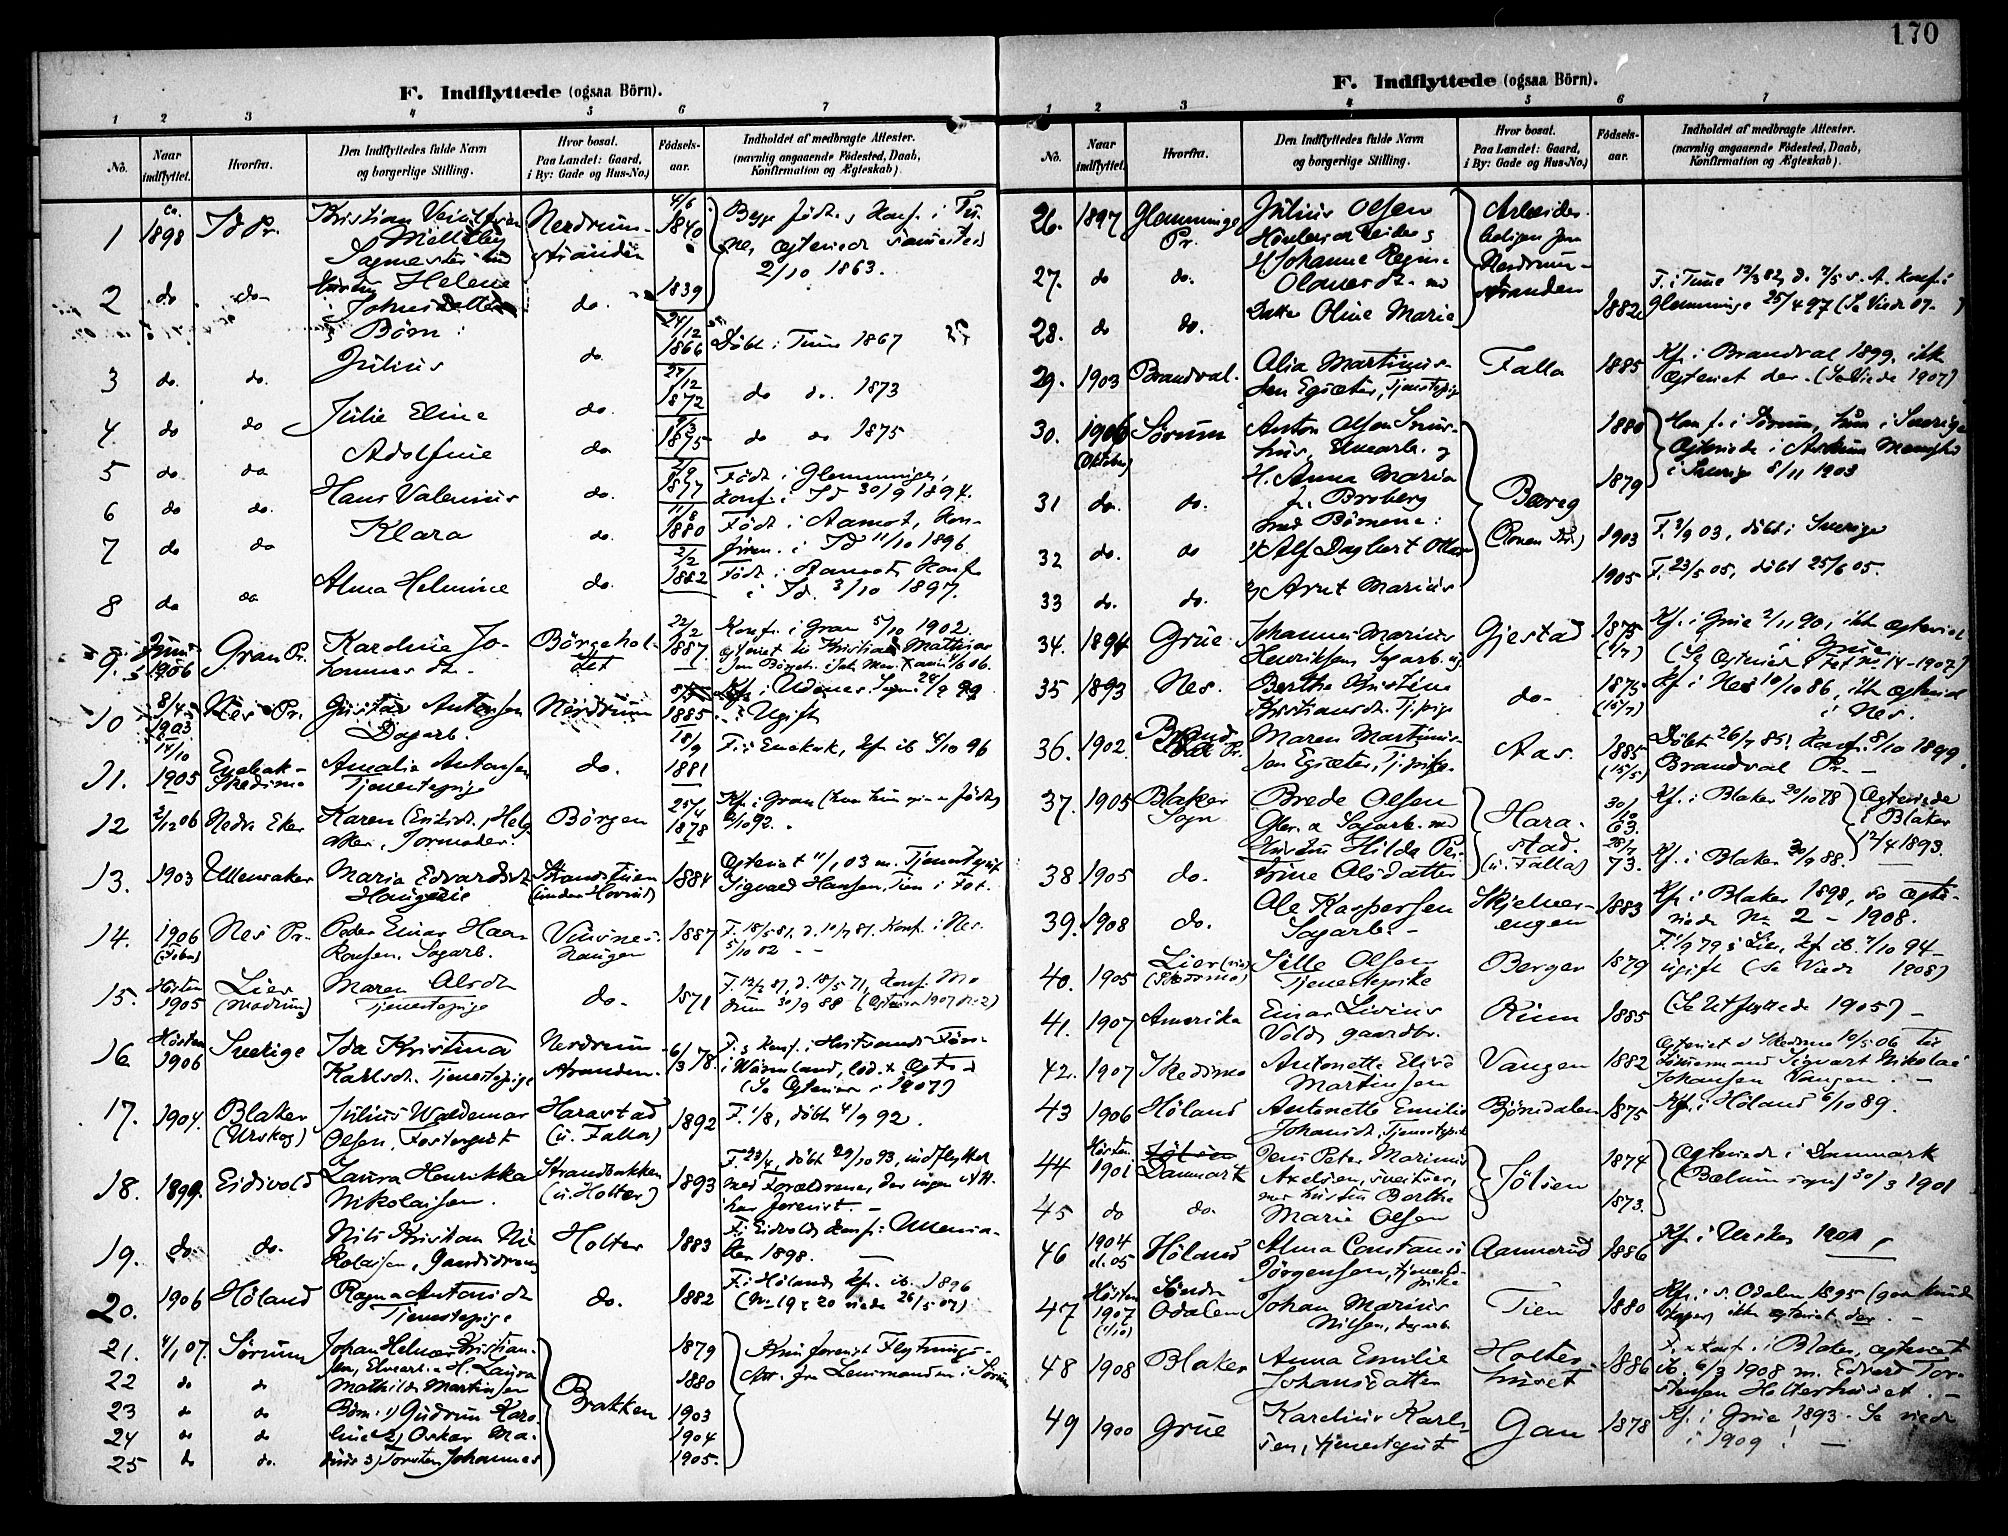 170
F. Indflyttede (ogsaa Börn).
1 2 3 4 5 6 7
No. Naar indflyttet. Hvorfra. Den Indflyttedes fulde Navn og borgerlige Stilling. Hvor bosat. Paa Landet: Gaard, i By: Gade og Hus-No.) Födsels-aar. Indholdet af medbragte Attester. (navnlig angaaende Födested, Daab, Konfirmation og Ægteskab).
1 ca. 1898 Id Pr. Kristian Nerdrum-
Sagmester stranden 4/6 1840 Begge födt og Konf. i Tu-
ne, ægteviet sammested
2/10 1863.
2 do do Hustru Helene
Johnsdatter do. 1839
Börn:
3 do. do. Julius do. 24/12 1866 Döbt i Tune 1867
4 do do Julie Eline do. 1872 do do. 1873
5 do do Adolfine do 1875 do do 1875
6 do do. Hans Valenius do. 1877 Födt i Glemminge,
Konf. i Id 30/9 1894.
7 do do Klara do. 11/8 1880 Födt i Aamot, Kon-
firm. i Id 11/10 1896
8 do do Alma Helmine do. 2/2 1882 Födt i Aamot, Konf.
i Id. 3/10 1897.
9. 1906 Gran Pr. Karoline Jo-
hannesd. Börgehol-
tet 22/2 1887. Konf. i Gran 5/10 1902.
ægteviet til Kristian Mathias
10 8/4 1903 Nes Pr. Gustav Antonsen
Dagarb. Nerdrum 1885 Ugift
11. 14/10 1905 Enebak-
Skedsmo Amalie Antonsen
Tjenestepige do. 18/9 1881 F. i Enebak, Kf. ib. 4/10 96
12 2/12 06 Nedre Eker Karen Eriksdt. Helg
aker, Jormoder. Börgen 25/4 1878 Kf. i Gran (hvor hun og er födt)
2/10 92.
13. 1903 Ullensaker Maria Edvardsdt.
Haugerie Strandstuen
(under Hovind) 1884 Ægteviet 11/1 03 m. Tjenestegut
Sigvald Hansen, Tien i Fet.
14. 1906 (Febr.) Nes Pr. Peder Einar Haa-
konsen, Sagarb. Vinsnes-
haugen 1887 F. 18/5 81, d. 10/7 81. Konf. i Nes.
5/10 02 - -
15. Hösten 1905 Lier
(Modum) Maren Olsdt.
Tjenestepige do. 1871 F. 12/2 , d. 18/5 71, Konf. Mo
dum 30/9 88 (Ægteviet 1907 No. 2)
16 Hösten 1906 Sverige Ida Kristina
Karlsdt. Tjenestepige Nerdrum-
stranden. 6/3 78. F. og Konf. i
i Wärmland, led. t. Ægtesk.
(Se Ægteviede i 1907)
17. 1904. Blaker
(Urskog) Julius Waldemar
Olsen, Fostergut Harastad
(u. Falla) 1892 F. 1/8, döbt 4/9 92.
18. 1899. Eidsvold Laura Henrikka
Nikolaisen. Strandbakken
(u. Holter) 1893 F. 23/4, döbt 29/10 93, indflyttet
med Forældrene, der ingen Att.
har forevist. -
19. do. do. Nils Kristian Ni
kolaisen, Gaardsdreng Holter 1883 F. i Eidsvold, Konf. i Ullensa-
ker 1898. -
20. 1906 Höland Ragna Antonsdt.
Tjenestepige do. 1882 F. i Höland, Kf. ib. 1896
(No. 19 & 20 viede 26/5 07)
21. 4/1 07. Sörum Johan Helmer Kristian-
sen, Elvearb. & H. Laura 1879 Kun forevist Flytnings-
22 do do Mathilde Martinsen 1880 Att. fra Lensmanden i Sörum
23 do do Börn: 1) Gudrun Karo Brakken 1903
24 do do line 2) Oskar Ma- 1904
25 do do. rius 3) Torsten Johannes 1905.
F. Indflyttede (ogsaa Börn).
1 2 3 4 5 6 7
No. Naar indflyttet. Hvorfra. Den Indflyttedes fulde Navn og borgerlige Stilling. Hvor bosat. Paa Landet: Gaard, i By: Gade og Hus-No.) Födsels-aar. Indholdet af medbragte Attester. (navnlig angaaende Födested, Daab, Konfirmation og Ægteskab).
26. 1897 Glemminge
Pr. Julius Olsen Arbeider-
boligen paa
27. do do. H. Johanne Regine
Olavesdt. med Nerdrum-
stranden
28. do do. Datter Oline Marie 1882 F. i Tune 12/3 82, d. 7/5 s. A. Konf. i
Glemminge 25/4 97 (Se Viede 07- )
29. 1903 Brandval. Alia Martinus-
sen Egsæter, Tjenestepige Falla 1885 Kf. i Brandval 1899, ikke
ægteviet der. (Se Viede 1907)
30. 1906 (Oktober) Sörum Anton Olsen Snus-
hus, Elvearb. og 1880 Konf. i Sörum, hun i Sverige
Ægteviede i Menighed
i Sverige 8/11 1903
31 do. do. H. Anna Maria
f. Broberg
med Börnene: Bæreg 1879
32 do. do 1) Alf Dagbert Ottar 1903 F. 3/9 03, döbt i Sverige
33 do. do. 2) Arnt Marius 1905 F. 23/5 05, döbt 25/6 05.
34. 1894 Grue Johannes Marius
Henriksen Sagarb. Gjestad 1875 Kf. i Grue 2/11 90, ikke ægteviet
i Grue
(Se Ægteviet i Fet No 14-1907)
35 1893 Nes. Berthe Kristine
Kristiansdt. Tj.pige do. 1875 (15/7) Kf. i Nes 10/10 86, ikke ægteviet
i Nes.
36. 1902. Brand
val Pr. Maren Martinus-
sen Egsæter, Tj.pige. Aas. 1885 (15/5) Döbt 26/7 85, Konf. 8/10 1899
Brandval Pr. -
37. 1905 Blaker
Sogn Brede Olsen
Gbr. & Sagarb. med Hara-
stad.
(u. Falla) 30/10 63. Kf. i Blaker 20/10 78 Ægteviede
i Blaker
12/4 1893.
38 1905 do. Hustru Hilda Pe-
trine Olsdatter 28/7 73. Kf. i Blaker 30/9 88.
39. 1908 do. Ole Kaspersen
Sagarb. - Skjelver-
engen 1883 Kf. i Blaker 1898, se Ægte-
viede No 2 - 1908.
40. 1905 Lier
(Skedsmo) Sille Olsen
Tjenestepike Berger 1879 F. 79 i Lier, Kf. ib. 7/10 94-
ugift (Se Viede 1908)
41. 1907 Amerika Einar Livius
Vold, gaardbr. Rim 1885 (Se Utflyttede 1905) -
42. 1907 Skedsmo Antonette Elise
Martinsen Vangen 1882 Ægteviet i Skedsmo 10/5 06 til
Sigvart Nikolai
Johansen Vangen. -
43 1906 Höland Antonette Emilie
Johansdt. Tjenestepike Björnsdalen 1875 Kf. i Höland 6/10 89.
44 Hösten 1901 Danmark Jens Peter Marinus
Axelsen, sveitser,
med hustru Berthe Jölsen 1874 Ægteviede i Danmark
(Bælum sogn) 30/3 1901
45 do do. Marie Olsen 1873.
46 1904 el. 05 Höland Alma Constance
Jörgensen, tjeneste-
pike Aamerud 1886 Kf. i Urskog 1901.
47 Hösten 1907 (1/10) Söndre
Odalen Johan Marius
Nilsen, dagarb. Tien 1880 Kf. i s. Odalen 1895
ikke ægteviet der. -
48 1908 Blaker Anna Emilie
Johansdatter Holter-
huset 1886 F. & Konf. i Blaker, ægteviet
ib. 6/3 1908 m. Edvard Tor-
stensen Holterhuset. -
49 1900 Grue Karelius Karl-
sen, tjenestegut Gan 1878 Kf. i Grue 1893. Se viede
i 1909! -